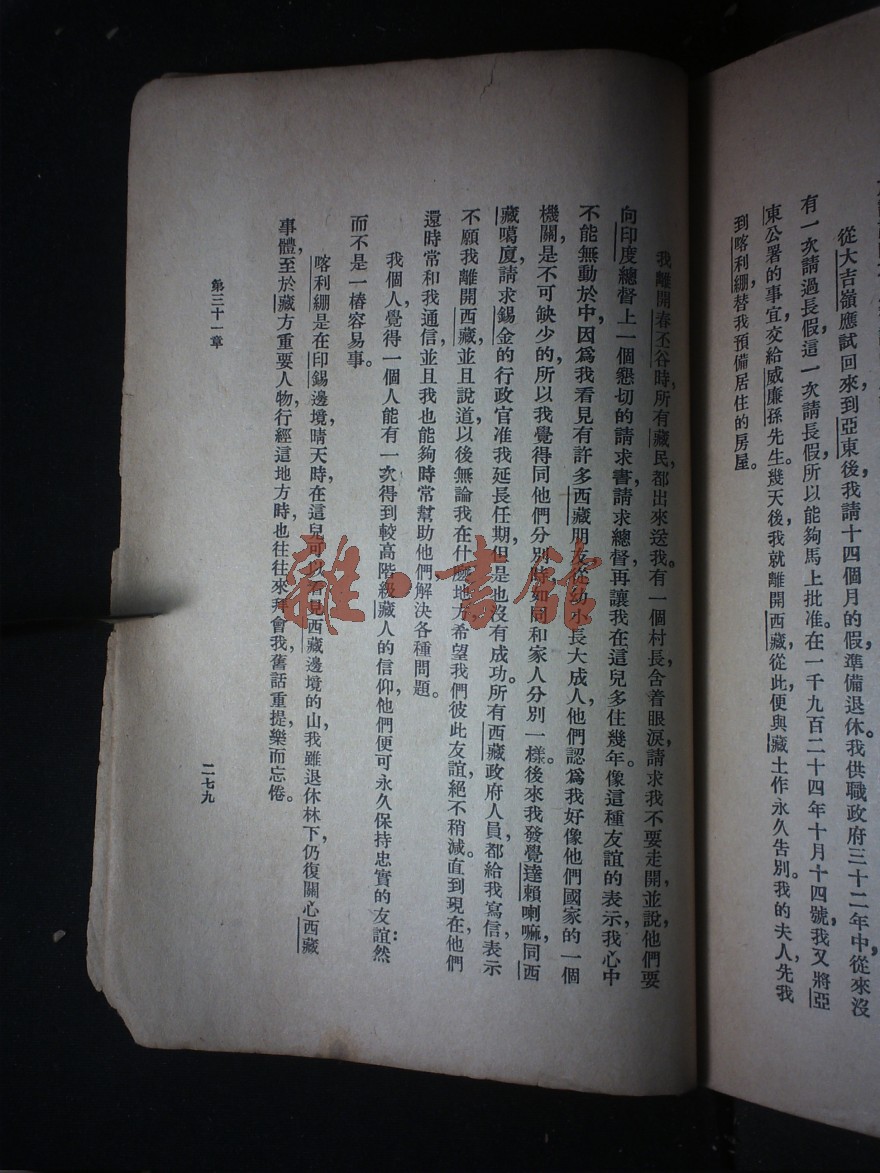 從大吉嶺應試回來,到亞東後,我請十四個月的假,準備退休。我供職政府三十二年中,從來沒
有一次請過長假,這一次請長假,所以能夠馬上批准。在一千九百二十四年十月十四號,我又將亞
東公署的事宜,交給威廉孫先生。幾天後,我就離開西藏,從此便與藏土作永久告別。我的夫人先我
到喀利繃,替我預備居住的房屋。
我離開春丕谷時,所有藏民,都出來送我。有一個村長,含着眼淚,請求我不要走開,並說,他們要
向印度總督上一個懇切的請求書,請求總督,再讓我在這兒多住幾年。像這種友誼的表示,我心中
不能無動於中,因爲我看見有許多西藏朋友,從幼小長大成人,他們認爲我好像他們國家的一個
機關,是不可缺少的,所以我覺得同他們分別時,如同和家人分別一樣。後來我發覺達賴喇嘛,同西
藏噶廈,請求錫金的行政官准我延長任期,但是也沒有成功。所有西藏政府人員,都給我寫信,表示
不願我離開西藏,並且說道,以後無論我在什麼地方,希望我們彼此友誼,絕不稍減。直到現在,他們
還時常和我通信,並且我也能夠時常幫助他們解決各種問題。
我個人覺得一個人能有一次得到較高階級藏人的信仰,他們便可永久保持忠實的友誼:然
而不是一樁容易事。
喀利繃是在印錫邊境,晴天時,在這兒可以看見西藏邊境的山,我雖退休林下,仍復關心西藏
事體,至於藏方重要人物,行經這地方時,也往往來拜會我,舊話重提,樂而忘倦。
第三十一章
二七九
雜·書館